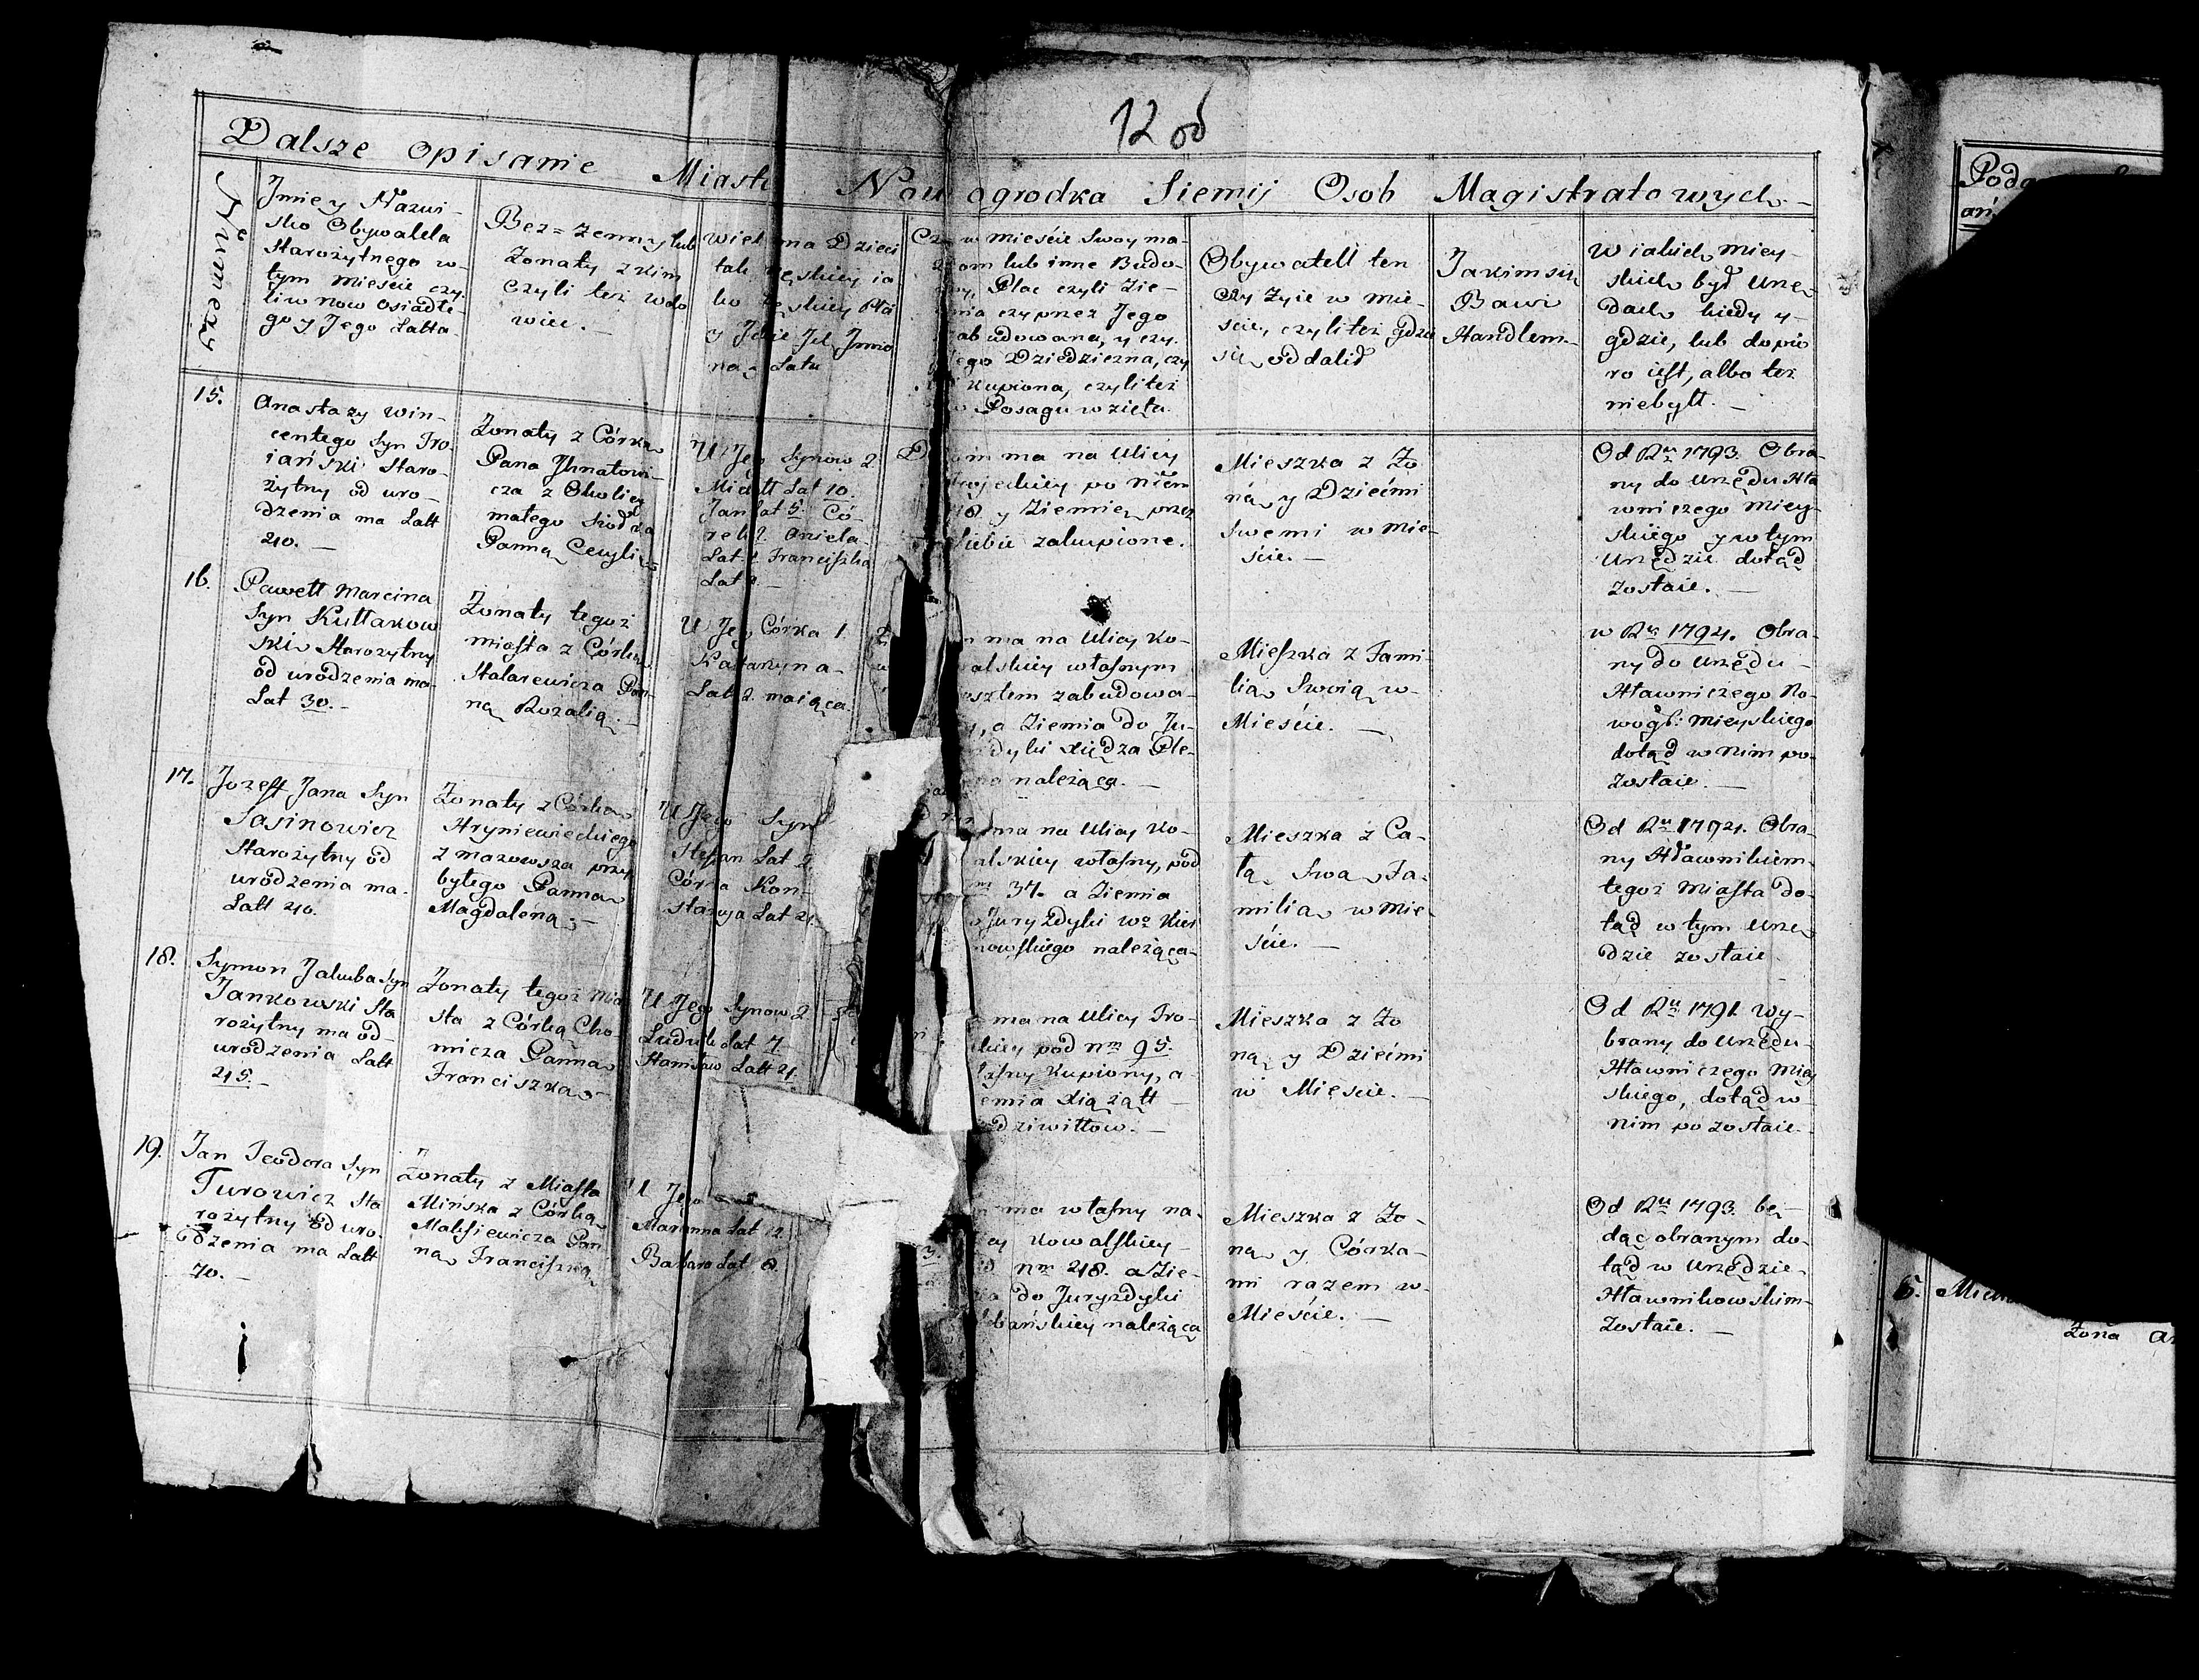 12 od
Dalsze opisanie Miasta Nowogrodka Siemij Osob Magistratowych
Numery
Jmie y Nazwi-
sko Obywatela
Starożytnego w
tym Mieście czy
li w now osiadłe-
go y Jego Latta
Bez=zenny lub
Zonaty z kim
czyli też wdo
wiec. -
Wiel ma Dzieci
tak męskiey ia
ko żęskiey Płci
y Jakie Jch Jmio
na y Lata
w mieście Swoy ma-
om lub inne Budo-
Plac czyli Zie-
mia czy przez Jego
abudowana, y czy
Jego Dziedziczna, czy
Kupiona, czyli też
w Posagu wzięta.
Obywatell ten
czy Zyie w Mie-
ście, czyli też gdzie
się oddalił
Jakim się
Bawi
Handlem
W iakich miey-
skich był Urzę-
dach kiedy y
gdzie, lub dopie
ro iest, albo też
niebyłł. -
15.
Anastazy Win-
centego Syn Tro-
iański Staro-
żytny od uro-
dzenia ma Latt
40. -
Zonaty z Córką
Pana Jhnatowi-
cza z Okolicy
małego
Panną Cecylią
U Jego Synow 2.
Michał Lat 10.
Jan Lat 5. Có-
rek 2. Aniela
Lat Franciszka
Lat
om ma na Ulicy
Trojeckiey po Nrem
y Ziemię przez
Siebie zakupione.
Mieszka z Żo
ną y Dziećmi
Swemi w Mie-
ście. -
Od Ru 1793. Obra-
ny do Urzędu Hła
wniczego Miey-
skiego y w tym
Urzędzie dotąd
Zostaie. -
16.
Pawełł Marcina
Syn Kułłakow
ski Starożytny
od urodzenia ma
Lat 30. -
Żonaty tegoż
miasta z Córką
Stalarewicza Pan-
ną Rozalią. -
U Jego Córka 1.
Katarzyna
Lat 2. maiąca.
ma na Ulicy Ko-
walskiey własnym
kosztem zabudowa-
ny, a Ziemia do Ju-
ryzdyki Xiędza Ple-
bana należąca. -
Mieszka z Fami
lią Swoią w
Mieście. -
w Ru 1794. Obra-
ny do Urzędu
Hławniczego No-
wogr: Mieyskiego
dotąd w nim po-
zostaie. -
17.
Jozeff Jana Syn
Sasinowicz
Starożytny od
urodzenia ma
Latt 40.
Zonaty z Córką
Hryniewieckiego
z Mazowsza przy
byłego Panną
Magdaleną. -
U Jego Syn
Stefan Lat 2.
Córka Kon-
stancya Lat 4.
ma na Ulicy Ko-
walskiey własny, pod
nm 37. a Ziemia
Juryzdyki
nowskiego należąca
Mieszka z Ca-
łą Swą Fa-
milią w Mie-
ście. -
Od Ru 1794. Obra-
ny Hławnikiem
tegoż Miasta do-
tąd w tym Urzę
dzie zostaie
18.
Symon Jakuba Syn
Jankowski Sta
rożytny ma od
urodzenia Latt
45. -
Zonaty tegoż Mia
sta z Córką Cho
micza Panną
Franciszką
U Jego Synow 2
Ludwik Lat 7
Stanisław Latt 4.
ma na Ulicy Tro-
ckiey pod nm 95.
własny Kupiony, a
Ziemia Xiążątt
Radziwiłłow. -
Mieszka z Żo
ną y Dziećmi
w Mieście. -
Od Ru 1791. Wy-
brany do Urzędu
Hławniczego Miey
skiego, dotąd w
nim pozostaie.
19.
Jan Teodora Syn
Turowicz Sta
rożytny od uro-
dzenia ma Latt
70. -
Zonaty z Miasta
Mińska z Córką
Malesiewicza Pan
ną Franciszką
U Jego
Marianna Lat 12
Barbara Lat 8.
ma własny na
Ulicy Kowalskiey
pod nm 48. a Zie-
mia do Juryzdyki
Plebańskiey należąca
Mieszka z Żo-
ną y Córka-
mi razem w
Mieście. -
Od Ru 1793. bę-
dąc obranym do-
tąd w Urzędzie
Hławnikowskim
Zostaie. -
5.
Żona